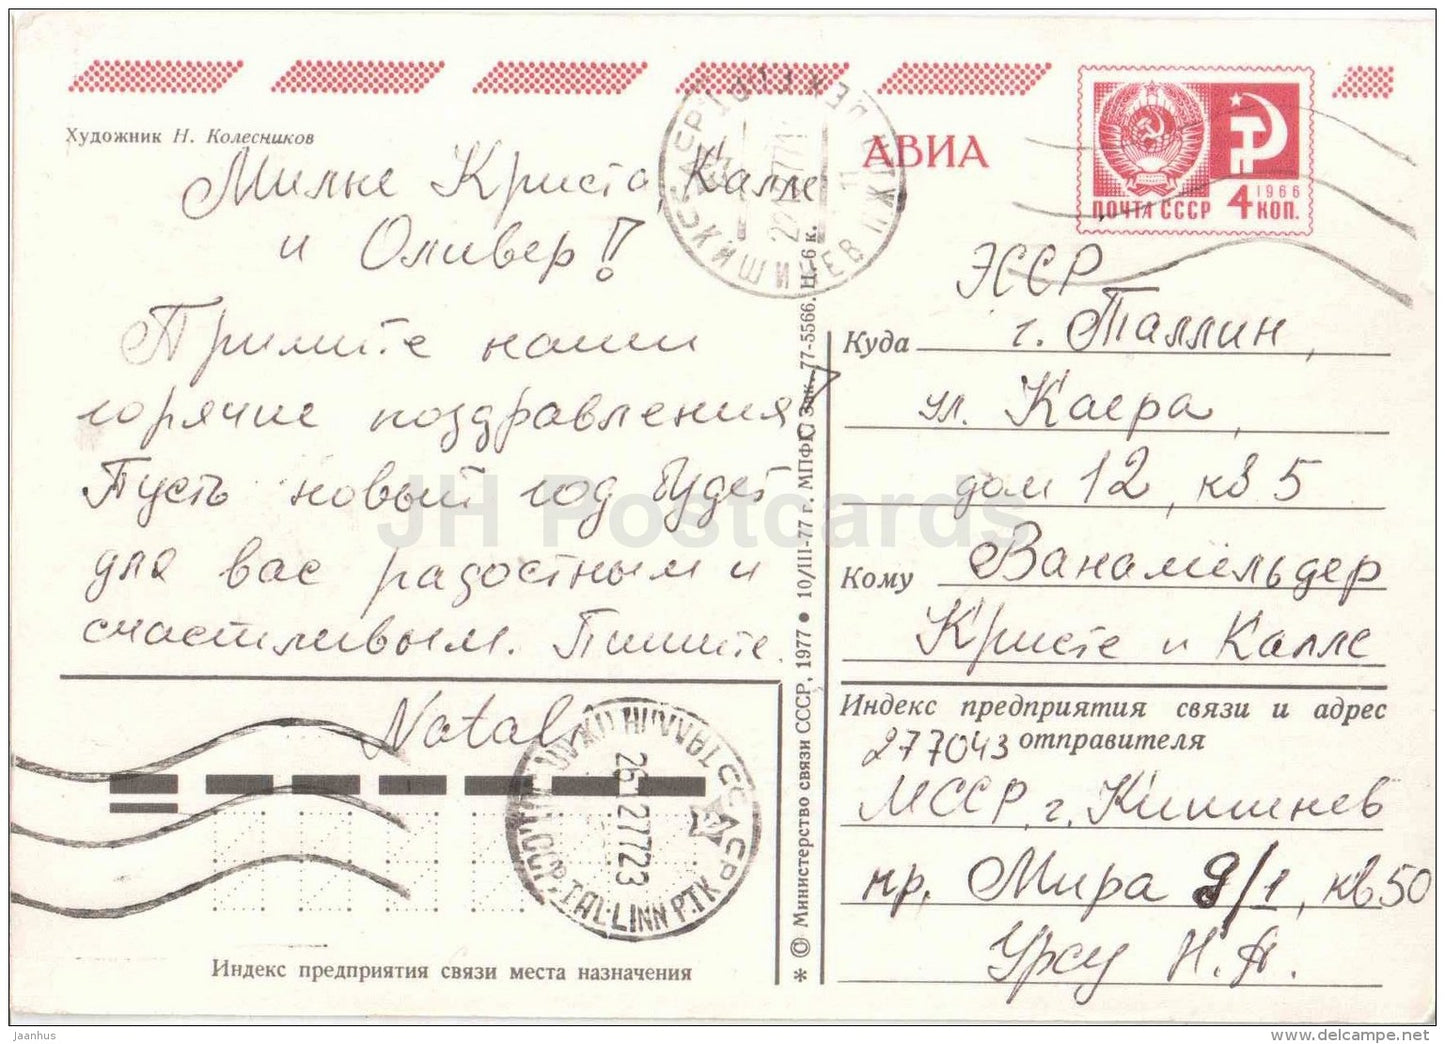 Художник Н. Колесников
Милке Криста, Калле
и Оливер!
Примите наши
горячие поздравления
Пусть новый год будет
для вас радостным и
счастливым. Пишите.
Natali
Индекс предприятия связи места назначения
КИШИНЕВ
26 12 77 23
TALLINN PTK
* © Министерство связи СССР, 1977 • 10/III-77 г. МПФГ Зак. 77-5566. Ц. 6 к.
АВИА
ПОЧТА СССР 4 КОП.
1966
ЭССР
Куда г. Таллин,
ул. Каера,
дом 12, кв 5
Кому Ванамельдер
Кристе и Калле
Индекс предприятия связи и адрес
отправителя
277043
МССР, г. Кишинев
пр. Мира 9/1, кв 50
Урсу Н. А.
JH Postcards
jaanhus
www.delcampe.net